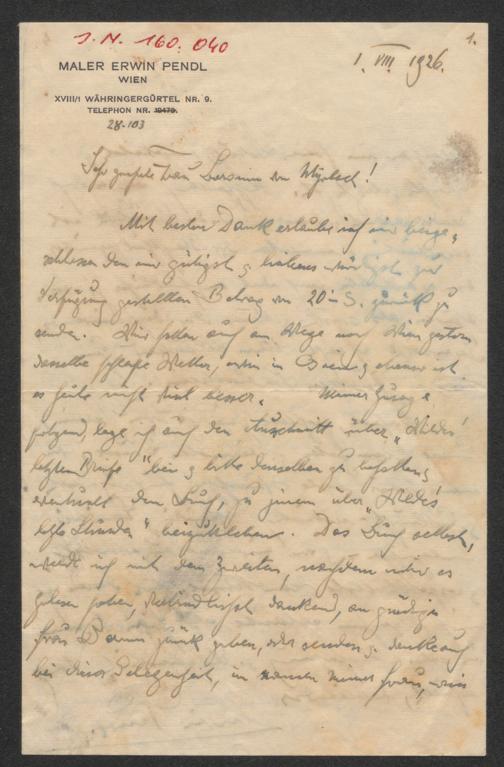 J.N. 160.040
1.
MALER ERWIN PENDL
WIEN
XVIII/1 WÄHRINGERGÜRTEL NR. 9.
TELEPHON NR. 19479.
28-103
1. VIII. 1926.
Sehr geehrte Frau Baronin von !
Mit bestem Dank erlaube ich mir beige-
schlossen den mir gütigst zur
Verfügung gestellten Betrag von 20 S. zurück zu
senden. Wir hatten auf dem Wege nach Wien gestern
dasselbe Wetter, wie in ebenso ist
es heute nicht viel besser. Meiner Zusage
folgend, lege ich auch den Ausschnitt über „Wildes
letzten Briefe" bei & bitte denselben zu behalten &
eventuell dem Buch, zu jenem über „Wildes
letzte Stunden" beizukleben. Das Buch selbst,
werde ich mit dem zweiten, nachdem wir es
gelesen haben, verbindlichst dankend, an gnädige
Frau Baronin zurück geben, oder senden & danke auch
bei dieser Gelegenheit, im Namen meiner Frau, wie